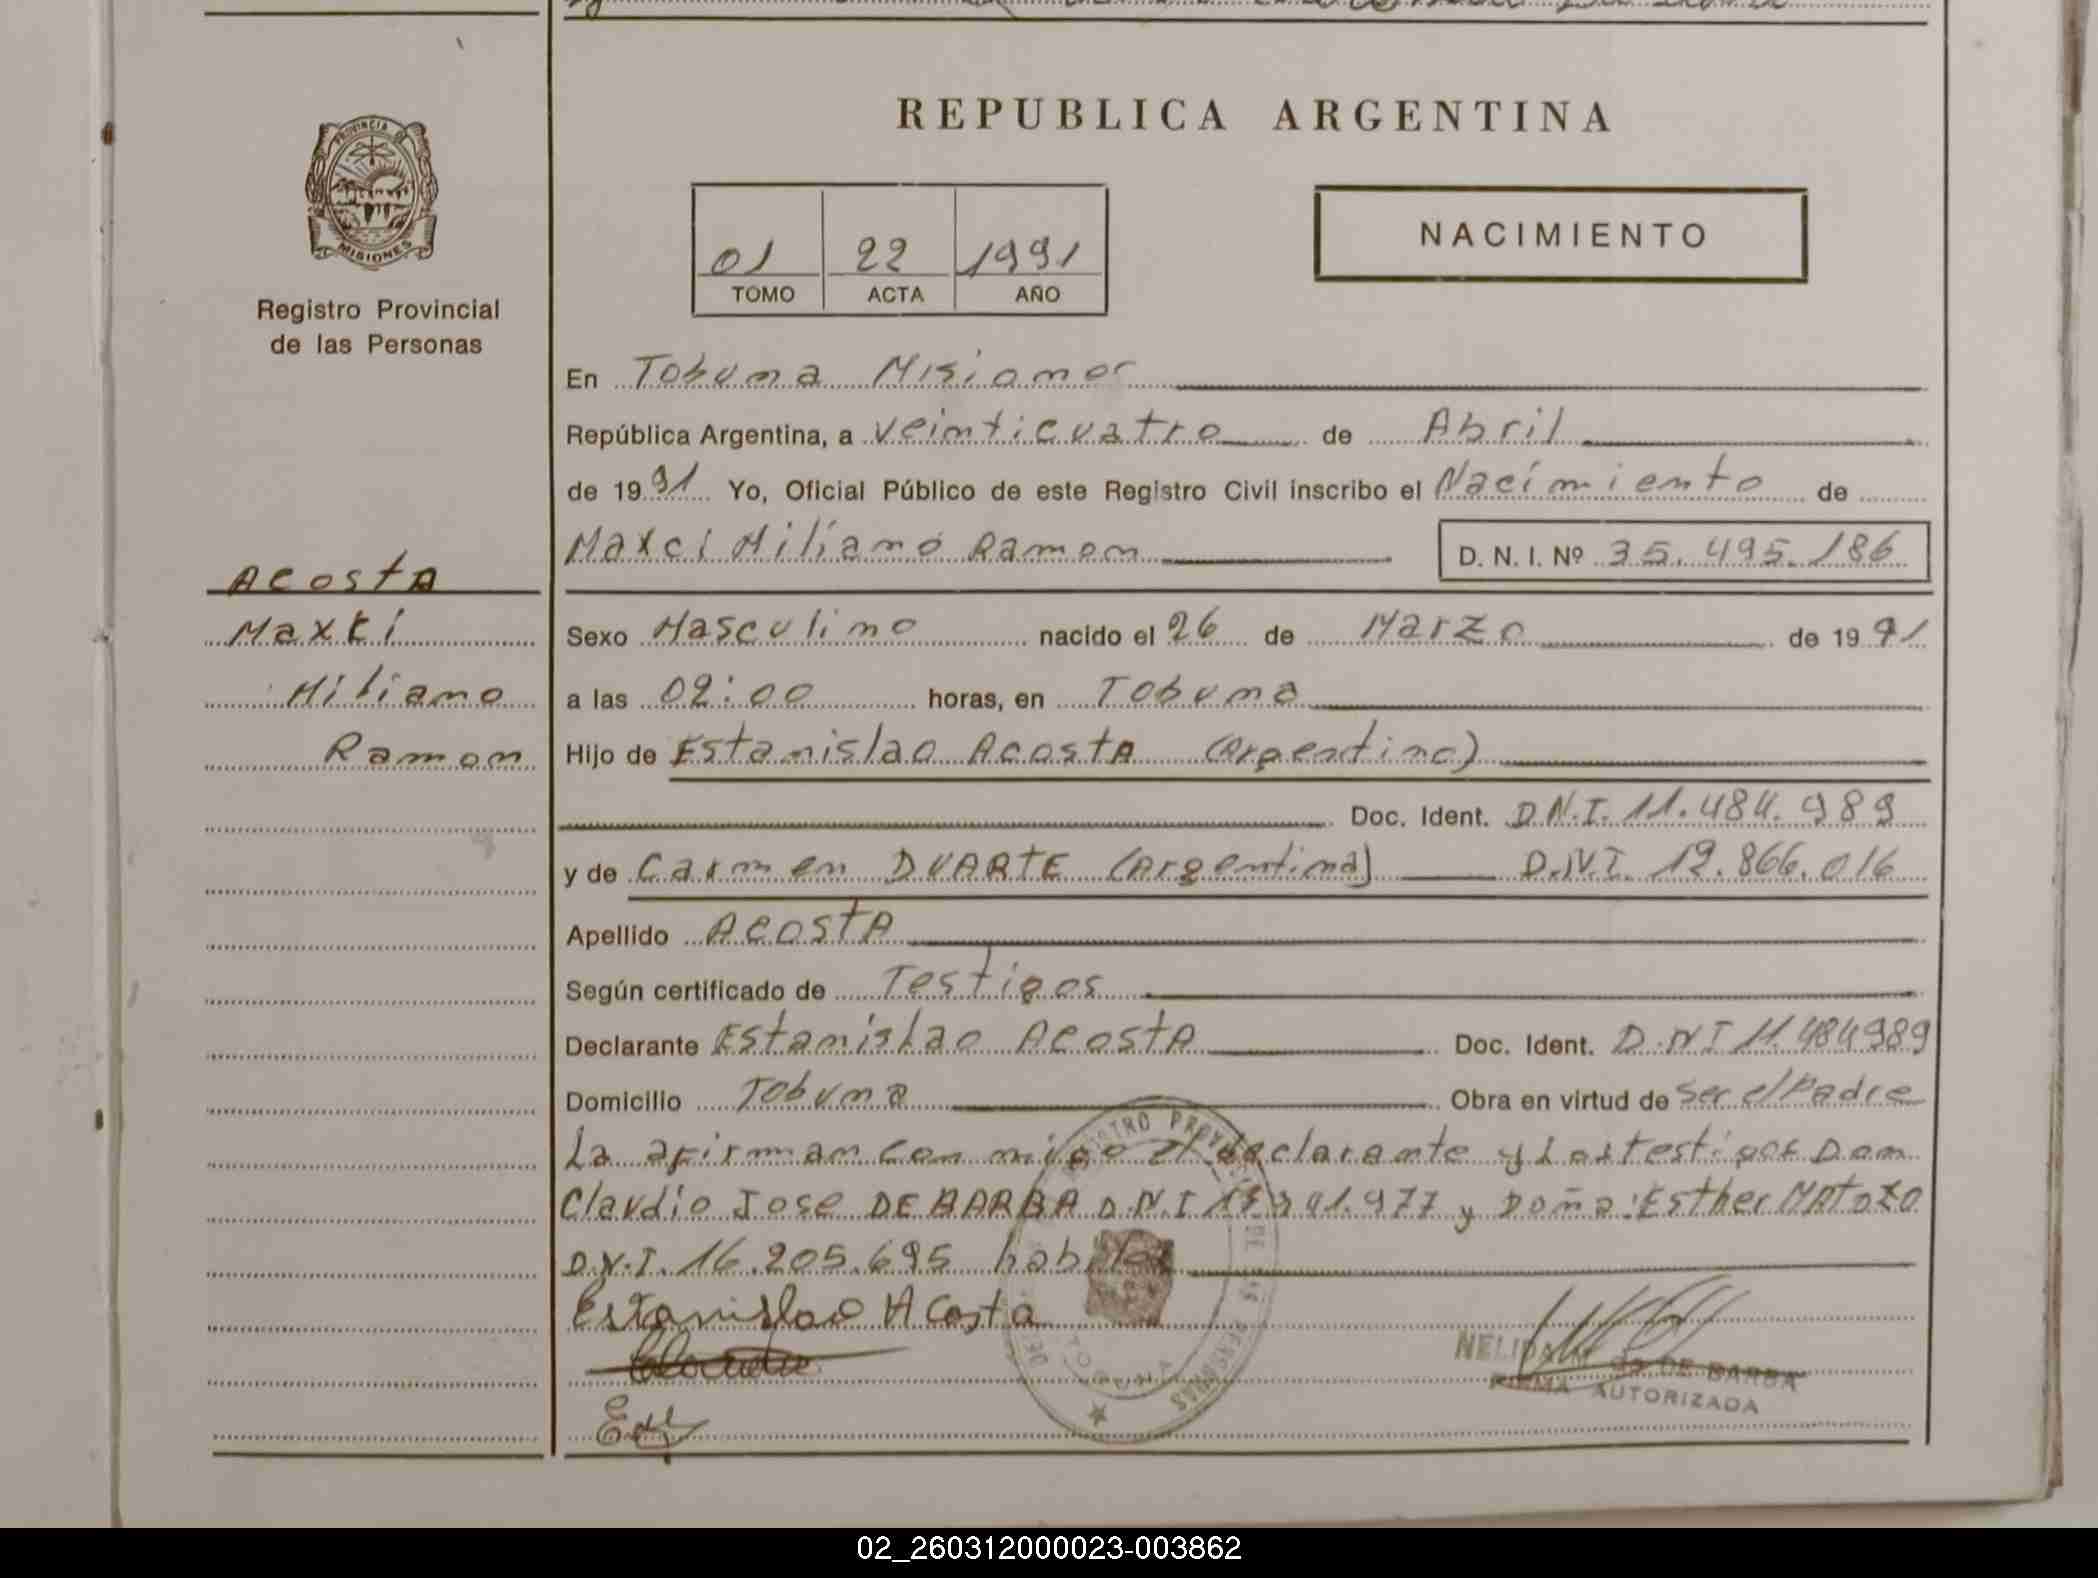 REPUBLICA ARGENTINA
PROVINCIA DE
MISIONES
Registro Provincial
de las Personas
01 22 1991
TOMO ACTA AÑO
NACIMIENTO
En Tobuna Misiones
República Argentina, a veinticuatro de Abril
de 1991 Yo, Oficial Público de este Registro Civil inscribo el Nacimiento de
Maxci Miliano Ramon D. N. I. Nº 35.495.186
ACOSTA
Maxci
Miliano
Ramon
Sexo Masculino nacido el 26 de Marzo de 1991
a las 02:00 horas, en Tobuna
Hijo de Estanislao ACOSTA (Argentino)
Doc. Ident. D.N.I. 11.484.989
y de Carmen DUARTE (Argentina) D.N.I. 12.866.016
Apellido ACOSTA
Según certificado de Testigos
Declarante Estanislao ACOSTA Doc. Ident. D.N.I 11.484989
Domicilio Tobuna Obra en virtud de ser el Padre
La afirman con migo el declarante y Los testigos Don
Claudio Jose DE BARBA D.N.I y Doña: Esther MATOZO
D.N.I. 16.205.695
Estanislao Acosta
REGISTRO PROVINCIAL DE LAS PERSONAS
TOBUNA
NELIDA DE BARBA
FIRMA AUTORIZADA
02_260312000023-003862